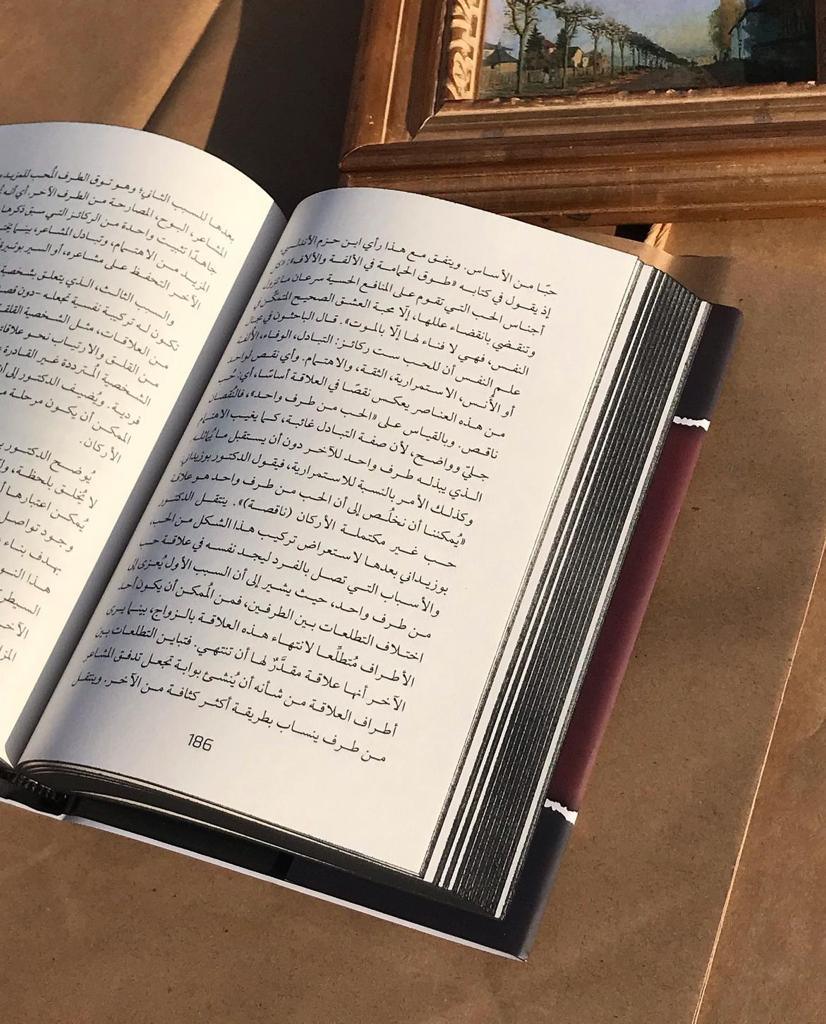 حبًا من الأساس. ويتفق مع هذا رأي ابن حزم الأندلسي
إذ يقول في كتابه «طوق الحمامة في الألفة والألاف»: «كل
أجناس الحب التي تقوم على المنافع الحسية سرعان ما تزول
وتنقضي بانقضاء عللها، إلّا محبة العشق الصحيح المتمكّن في
النفس، فهي لا فناء لها إلّا بالموت». قال الباحثون في مجال
علم النفس أن للحب ست ركائز: التبادل، الوفاء، الألفة
أو الأُنس، الاستمرارية، الثقة، والاهتمام. وأي نقص لواحد
من هذه العناصر يعكس نقصًا في العلاقة أساسًا، أي: حُب
ناقص. وبالقياس على «الحب من طرف واحد»، فالنُقصان
جليّ وواضح، لأن صفة التبادل غائبة، كما يغيب الاهتمام
الذي يبذله طرف واحد للآخر دون أن يستقبل ما يُماثله
وكذلك الأمر بالنسبة للاستمرارية، فيقول الدكتور بوزيداني:
«يُمكننا أن نخلُص إلى أن الحب من طرف واحد هو علاقة
حب غير مكتملة الأركان (ناقصة)». ينتقل الدكتور
بوزيداني بعدها لاستعراض تركيب هذا الشكل من الحب،
والأسباب التي تصل بالفرد ليجد نفسه في علاقة حب
من طرف واحد، حيث يشير إلى أن السبب الأول يُعزى إلى
اختلاف التطلعات بين الطرفين، فمن المُمكن أن يكون أحد
الأطراف مُتطلِّعا لانتهاء هذه العلاقة بالزواج، بينما يرى
الآخر أنها علاقة مقدَّرٌ لها أن تنتهي. فتباين التطلعات بين
أطراف العلاقة من شأنه أن يُنشئ بوابة تجعل تدفق المشاعر
من طرف ينساب بطريقة أكثر كثافة من الآخر. وينتقل
186
بعدها للسبب الثاني؛ وهو توق الطرف المُحب للمزيد
المشاعر، البوح، المصارحة من الطرف الآخر. أي أنه
جاهدًا تثبيت واحدة من الركائز التي سبق ذكرها
المزيد من الاهتمام، وتبادل المشاعر، بينما
الآخر التحفظ على مشاعره، أو السير
والسبب الثالث، الذي يتعلق بشخصية
تكون له تركيبة نفسية تجعله -دون
من العلاقات، مثل الشخصية القلقة
من القلق والارتياب نحو
الشخصية المُترددة غير القادرة
فردية. ويُضيف الدكتور إلى
المُمكن أن يكون مرحلة
الأركان.
يُوضح الدكتور
لا تُخلَق بلحظة،
يُمكن اعتبارها
وجود تواصل
بهدف بناء
هذا
السيطر
الآخر